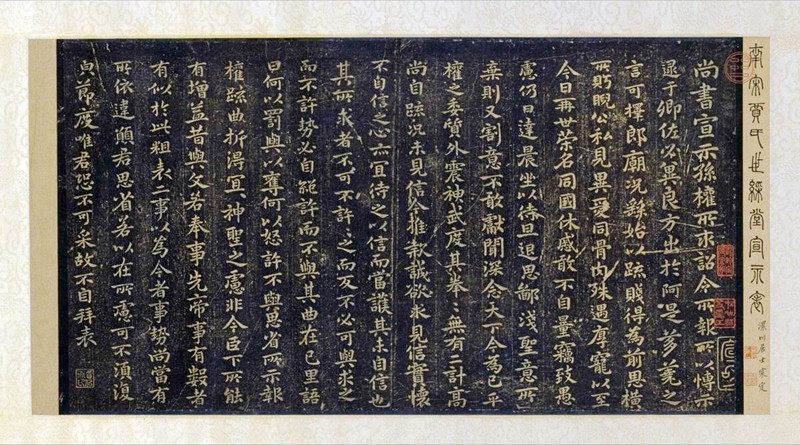 南宋賈氏世綵堂宣示表
川居士審定
尚書宣示孫權所求詔令所報所以博示
逮于卿佐必冀良方出於阿是芻蕘之
言可擇郎廟況繇始以疏賤得為前恩橫
所眄睨公私見異愛同骨肉殊遇厚寵以至
今日再世榮名同國休慼敢不自量竊致愚
慮仍日達晨坐以待旦退思鄙淺聖意所
棄則又割意不敢獻聞深念天下今為已平
權之委質外震神武度其拳〻無有二計高
尚自疏況未見信今推款誠欲求見信實懷
不自信之心亦宜待之以信而當護其未自信也
其所求者不可不許〻之而反不必可與求之
而不許勢必自絕許而不與其曲在己里語
曰何以罰與以奪何以怒許不與思省所示報
權疏曲折得宜〻神聖之慮非今臣下所能
有增益昔與文若奉事先帝事有數者
有似於此粗表二事以為今者事勢尚當有
所依違願君思省若以在所慮可不須復
與節度唯君恐不可采故不自拜表